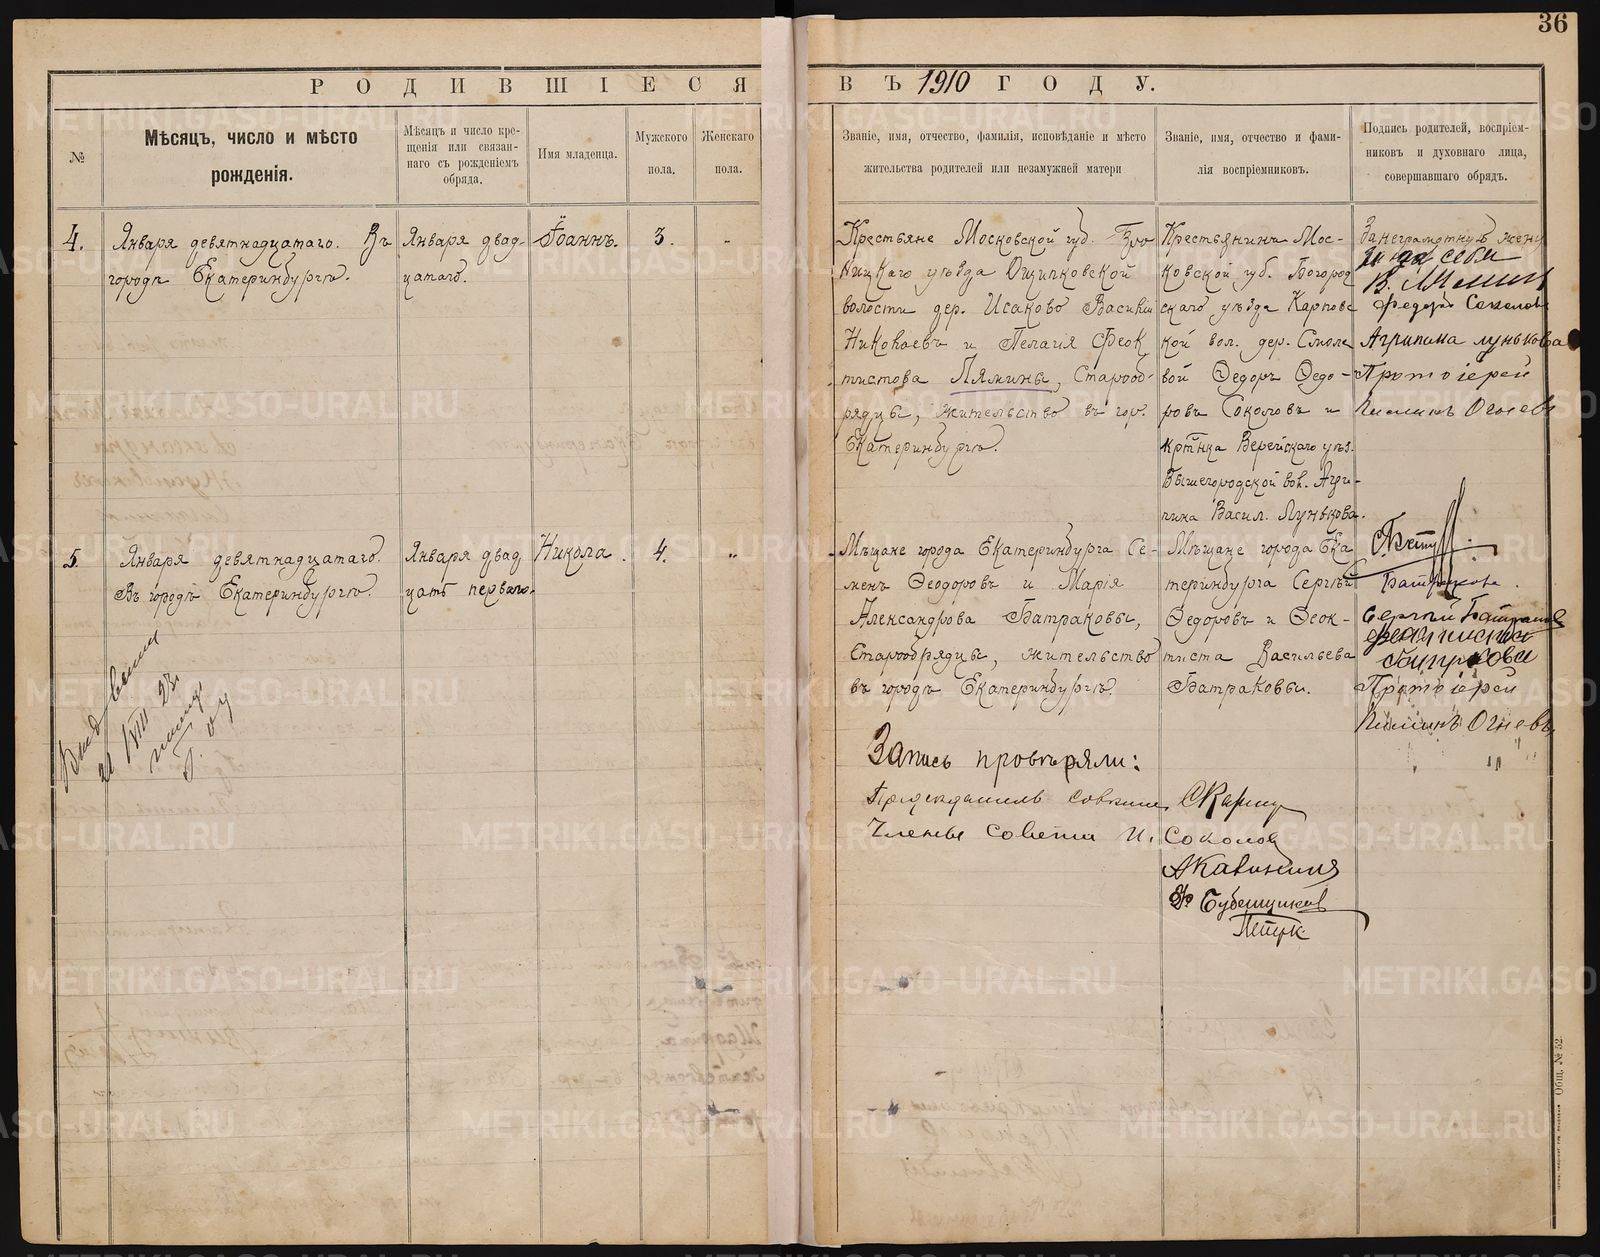 36
РОДИВШІЕСЯ ВЪ 1910 ГОДУ.
№
Мѣсяцъ, число и мѣсто
рожденія.
Мѣсяцъ и число кре-
щенія или связан-
наго съ рожденіемъ
обряда.
Имя младенца.
Мужского
пола.
Женскаго
пола.
Званіе, имя, отчество, фамилія, исповѣданіе и мѣсто
жительства родителей или незамужней матери
Званіе, имя, отчество и фами-
лія воспріемниковъ.
Подпись родителей, воспріем-
никовъ и духовнаго лица,
совершавшаго обрядъ.
4.
Января девятнадцатаго. Въ
городѣ Екатеринбургѣ.
Января двад-
цатаго.
Іоаннъ.
3.
Крестьяне Московской губ.
ницкаго уѣзда
волости дер. Исаково Василій
Николаевъ и Пелагія Феок
тистова Лямины, Старооб-
рядцы, жительство въ гор.
Екатеринбургѣ.
Крестьянинъ Мос-
ковской губ. Богород
скаго уѣзда Карповс
кой вол. дер. Смоле
вой Ѳедоръ Ѳедо-
ровъ Соколовъ и
кртнка Верейскаго уѣз.
Вышегородской вол. Агри-
пина Васил. Лунькова.
За неграмотную жену
и за себя
В. Лямин
Федоръ Соколовъ
Агрипина лунькова
Протоіерей
Пименъ Огневъ
5.
Января девятнадцатаго.
Въ городѣ Екатеринбургѣ.
Января двад
цать перваго.
Никола.
4.
Мѣщане города Екатеринбурга Се-
менъ Ѳеодоровъ и Марія
Александрова Батраковы,
Старообрядцы, жительство
въ городѣ Екатеринбургѣ.
Мѣщане города Ека
теринбурга Сергѣй
Ѳедоровъ и Ѳеок-
тиста Васильева
Батраковы.
Сергѣй Батраков
Протоіерей
Пименъ Огневъ
21/VIII 23
Запись провѣряли:
Предсѣдатель совѣта
Члены совѣта И. Соколов
METRIKI.GASO-URAL.RU
Общ. № 52.